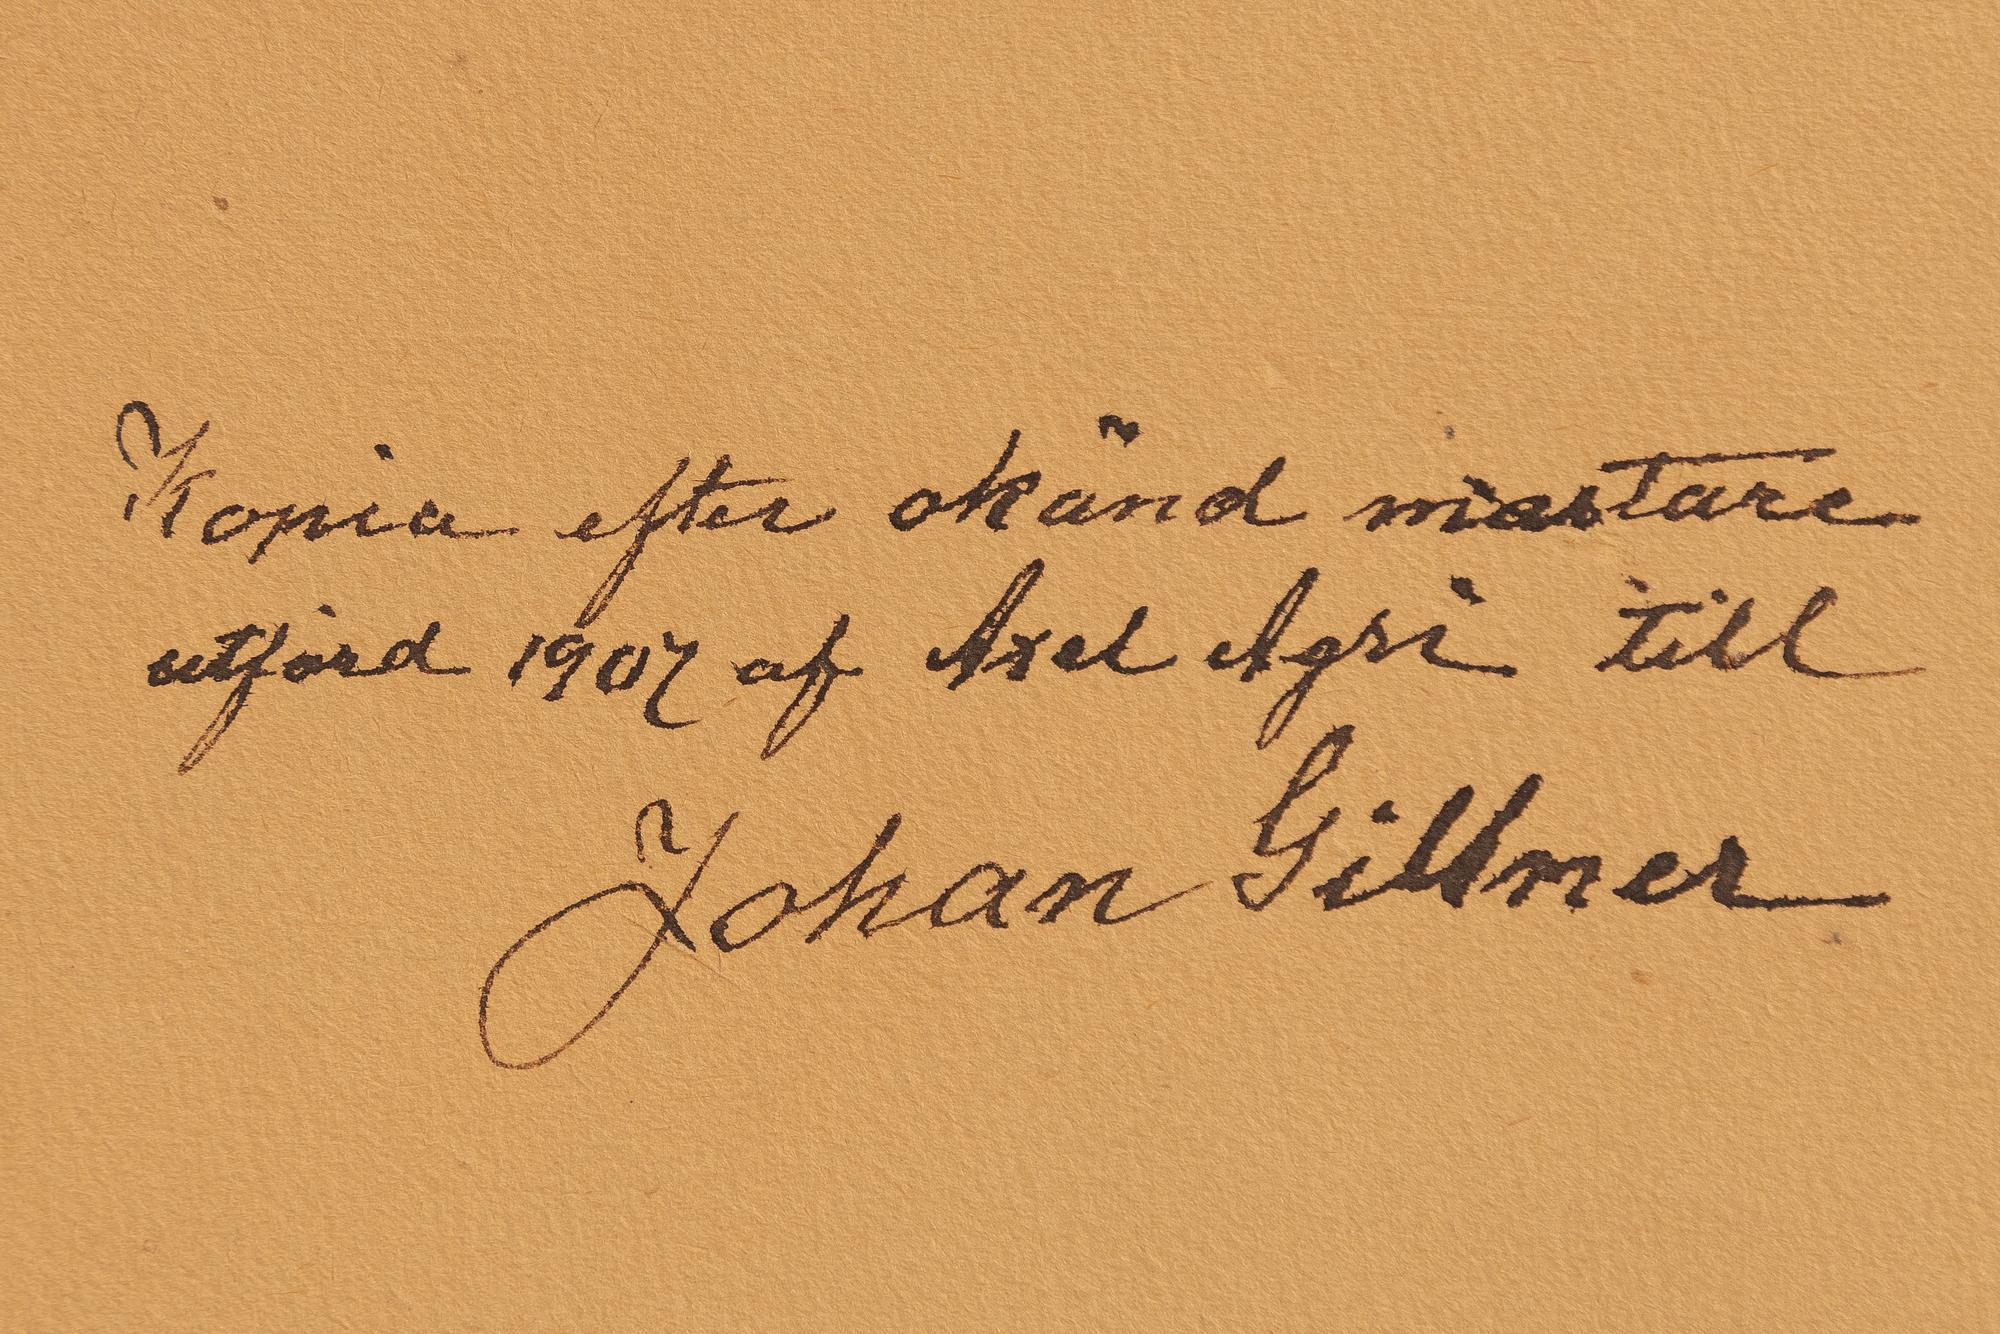 Kopia efter okänd mästare
utförd 1907 af Axel Agri till
Johan Gillner